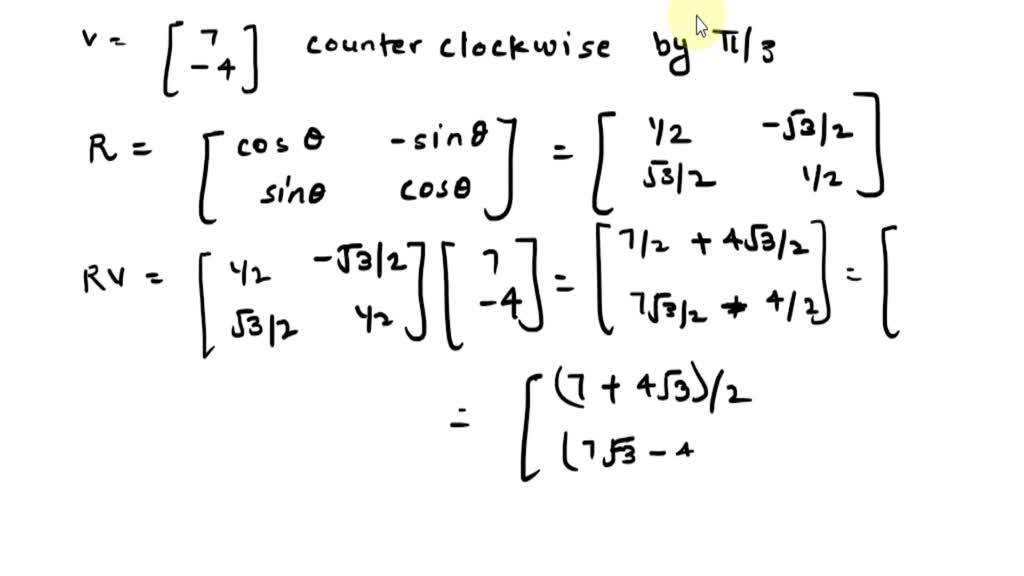 v = [ 7 -4 ] counter clockwise by π/3
R = [ cos θ -sin θ sin θ cos θ ] = [ 1/2 -√3/2 √3/2 1/2 ]
RV = [ 1/2 -√3/2 √3/2 1/2 ] [ 7 -4 ] = [ 7/2 + 4√3/2 7√3/2 - 4/2 ] = [
= [ (7 + 4√3)/2
(7√3 - 4